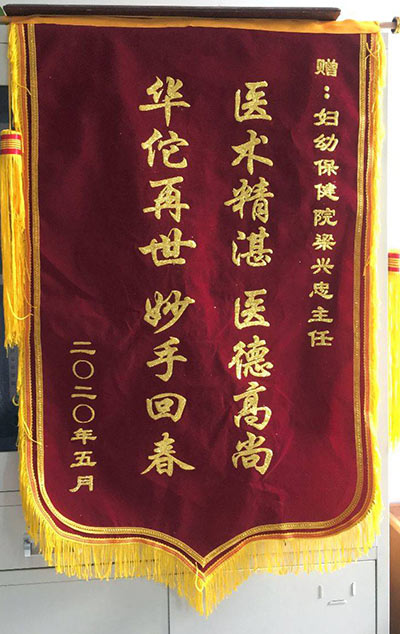 赠：妇幼保健院梁兴忠主任
医术精湛 医德高尚
华佗再世 妙手回春
二〇二〇年五月